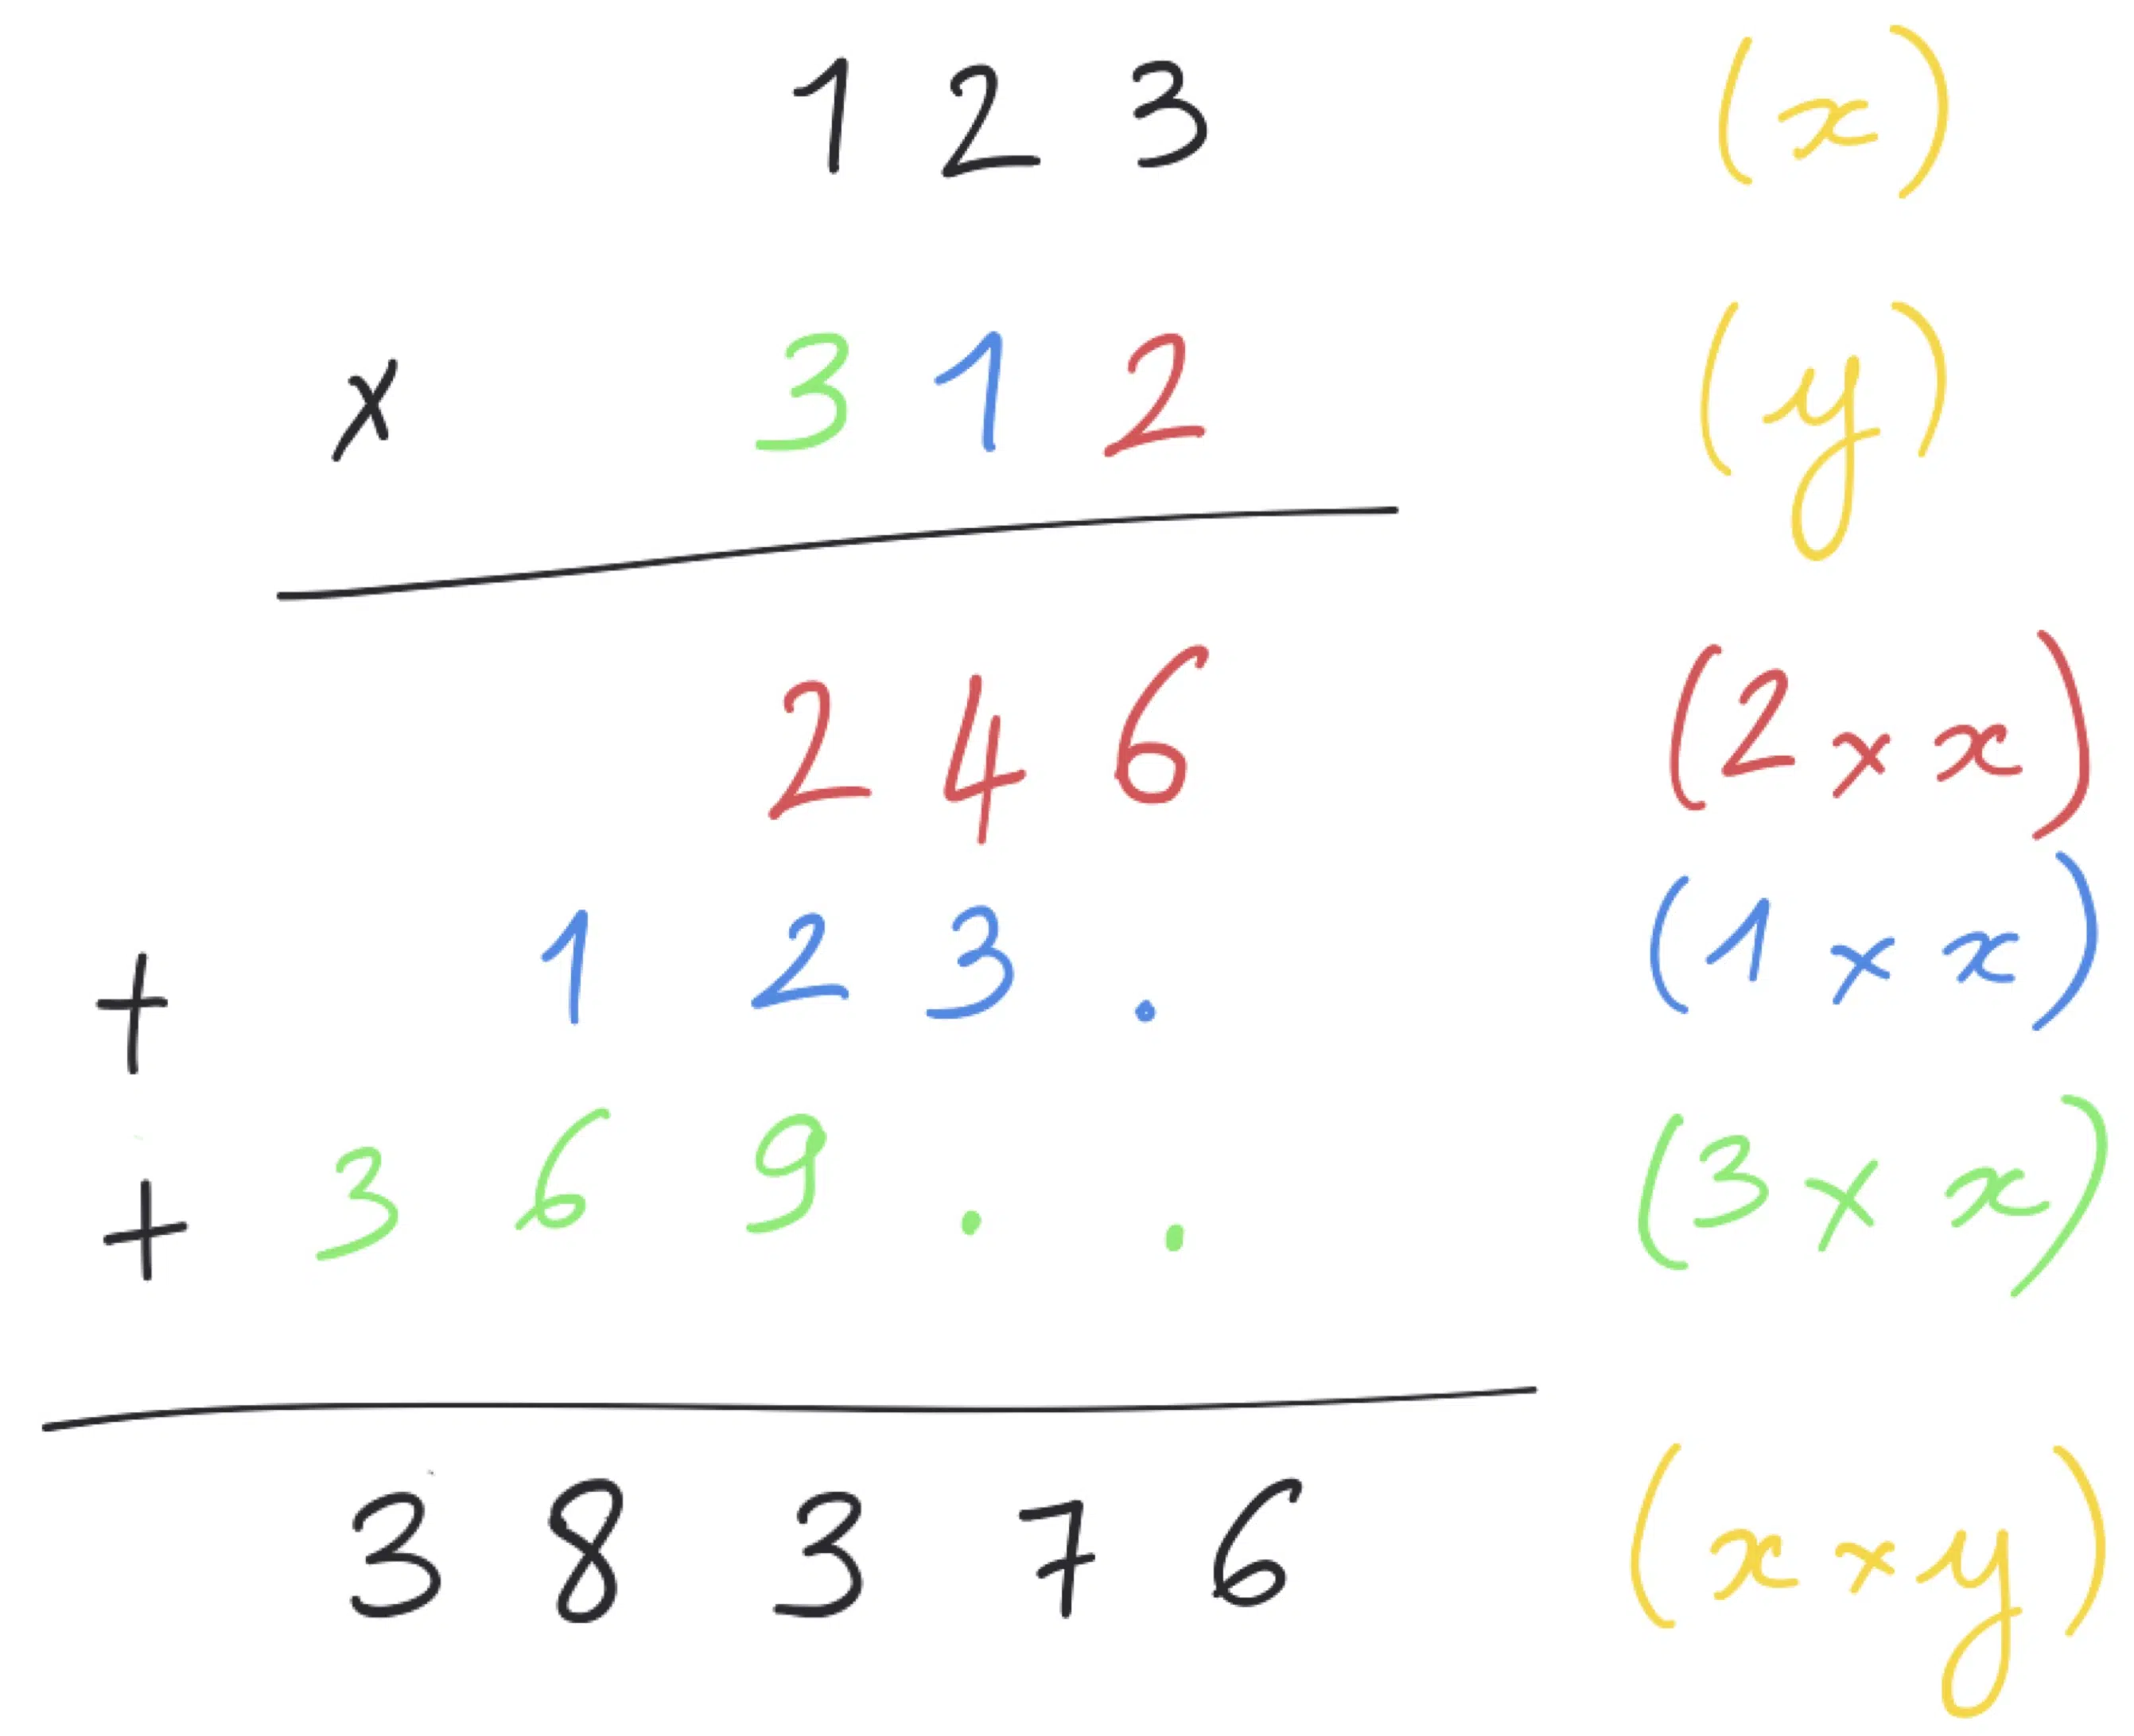 1 2 3 (x)
x 3 1 2 (y)
2 4 6 (2 x x)
+ 1 2 3 . (1 x x)
+ 3 6 9 . . (3 x x)
3 8 3 7 6 (x x y)